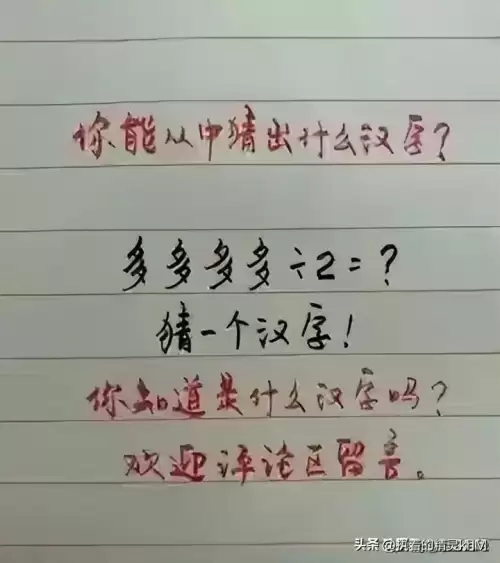 你能从中猜出什么汉字?
多多多多÷2=?
猜一个汉字!
你知道是什么汉字吗?
欢迎评论区留言。
头条